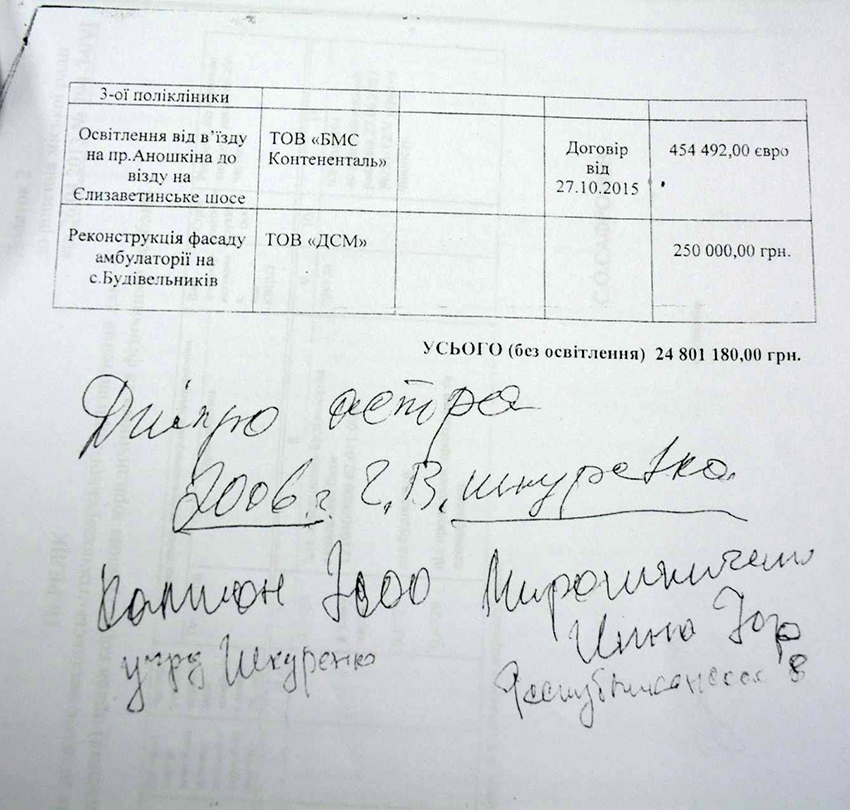 3-ої полікліники
Освітлення від в’їзду
на пр.Аношкіна до
візду на
Єлизаветинське шосе
ТОВ «БМС
Контененталь»
Договір
від
27.10.2015
454 492,00 євро
Реконструкція фасаду
амбулаторії на
с.Будівельників
ТОВ «ДСМ»
250 000,00 грн.
УСЬОГО (без освітлення) 24 801 180,00 грн.
Дніпро астра
2006 г. Г.В. Шкуренко
ООО Мирошниченко
учред Шкуренко Инна
Республиканская 8